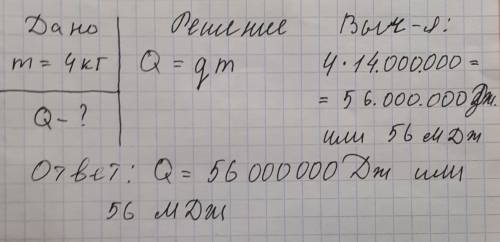 Дано
m = 4кг
Q - ?
Решение
Q = qm
Выч-я:
4·14.000.000 =
= 56.000.000Дж.
или 56 мДж
Ответ: Q = 56 000 000 Дж или
56 мДж